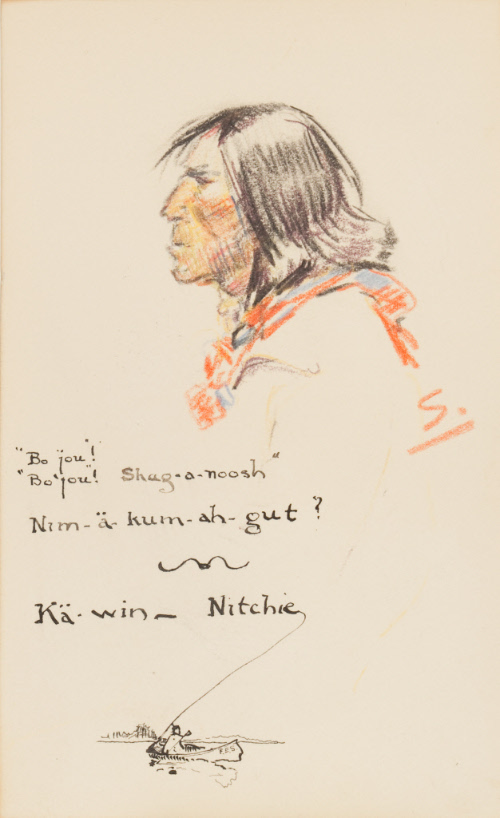 "Bo jou"!
"Bo'jou"! Shag-a-noosh"
Nim-ä-kum-ah-gut?
Kä-win— Nitchie
F.E.S.
S.